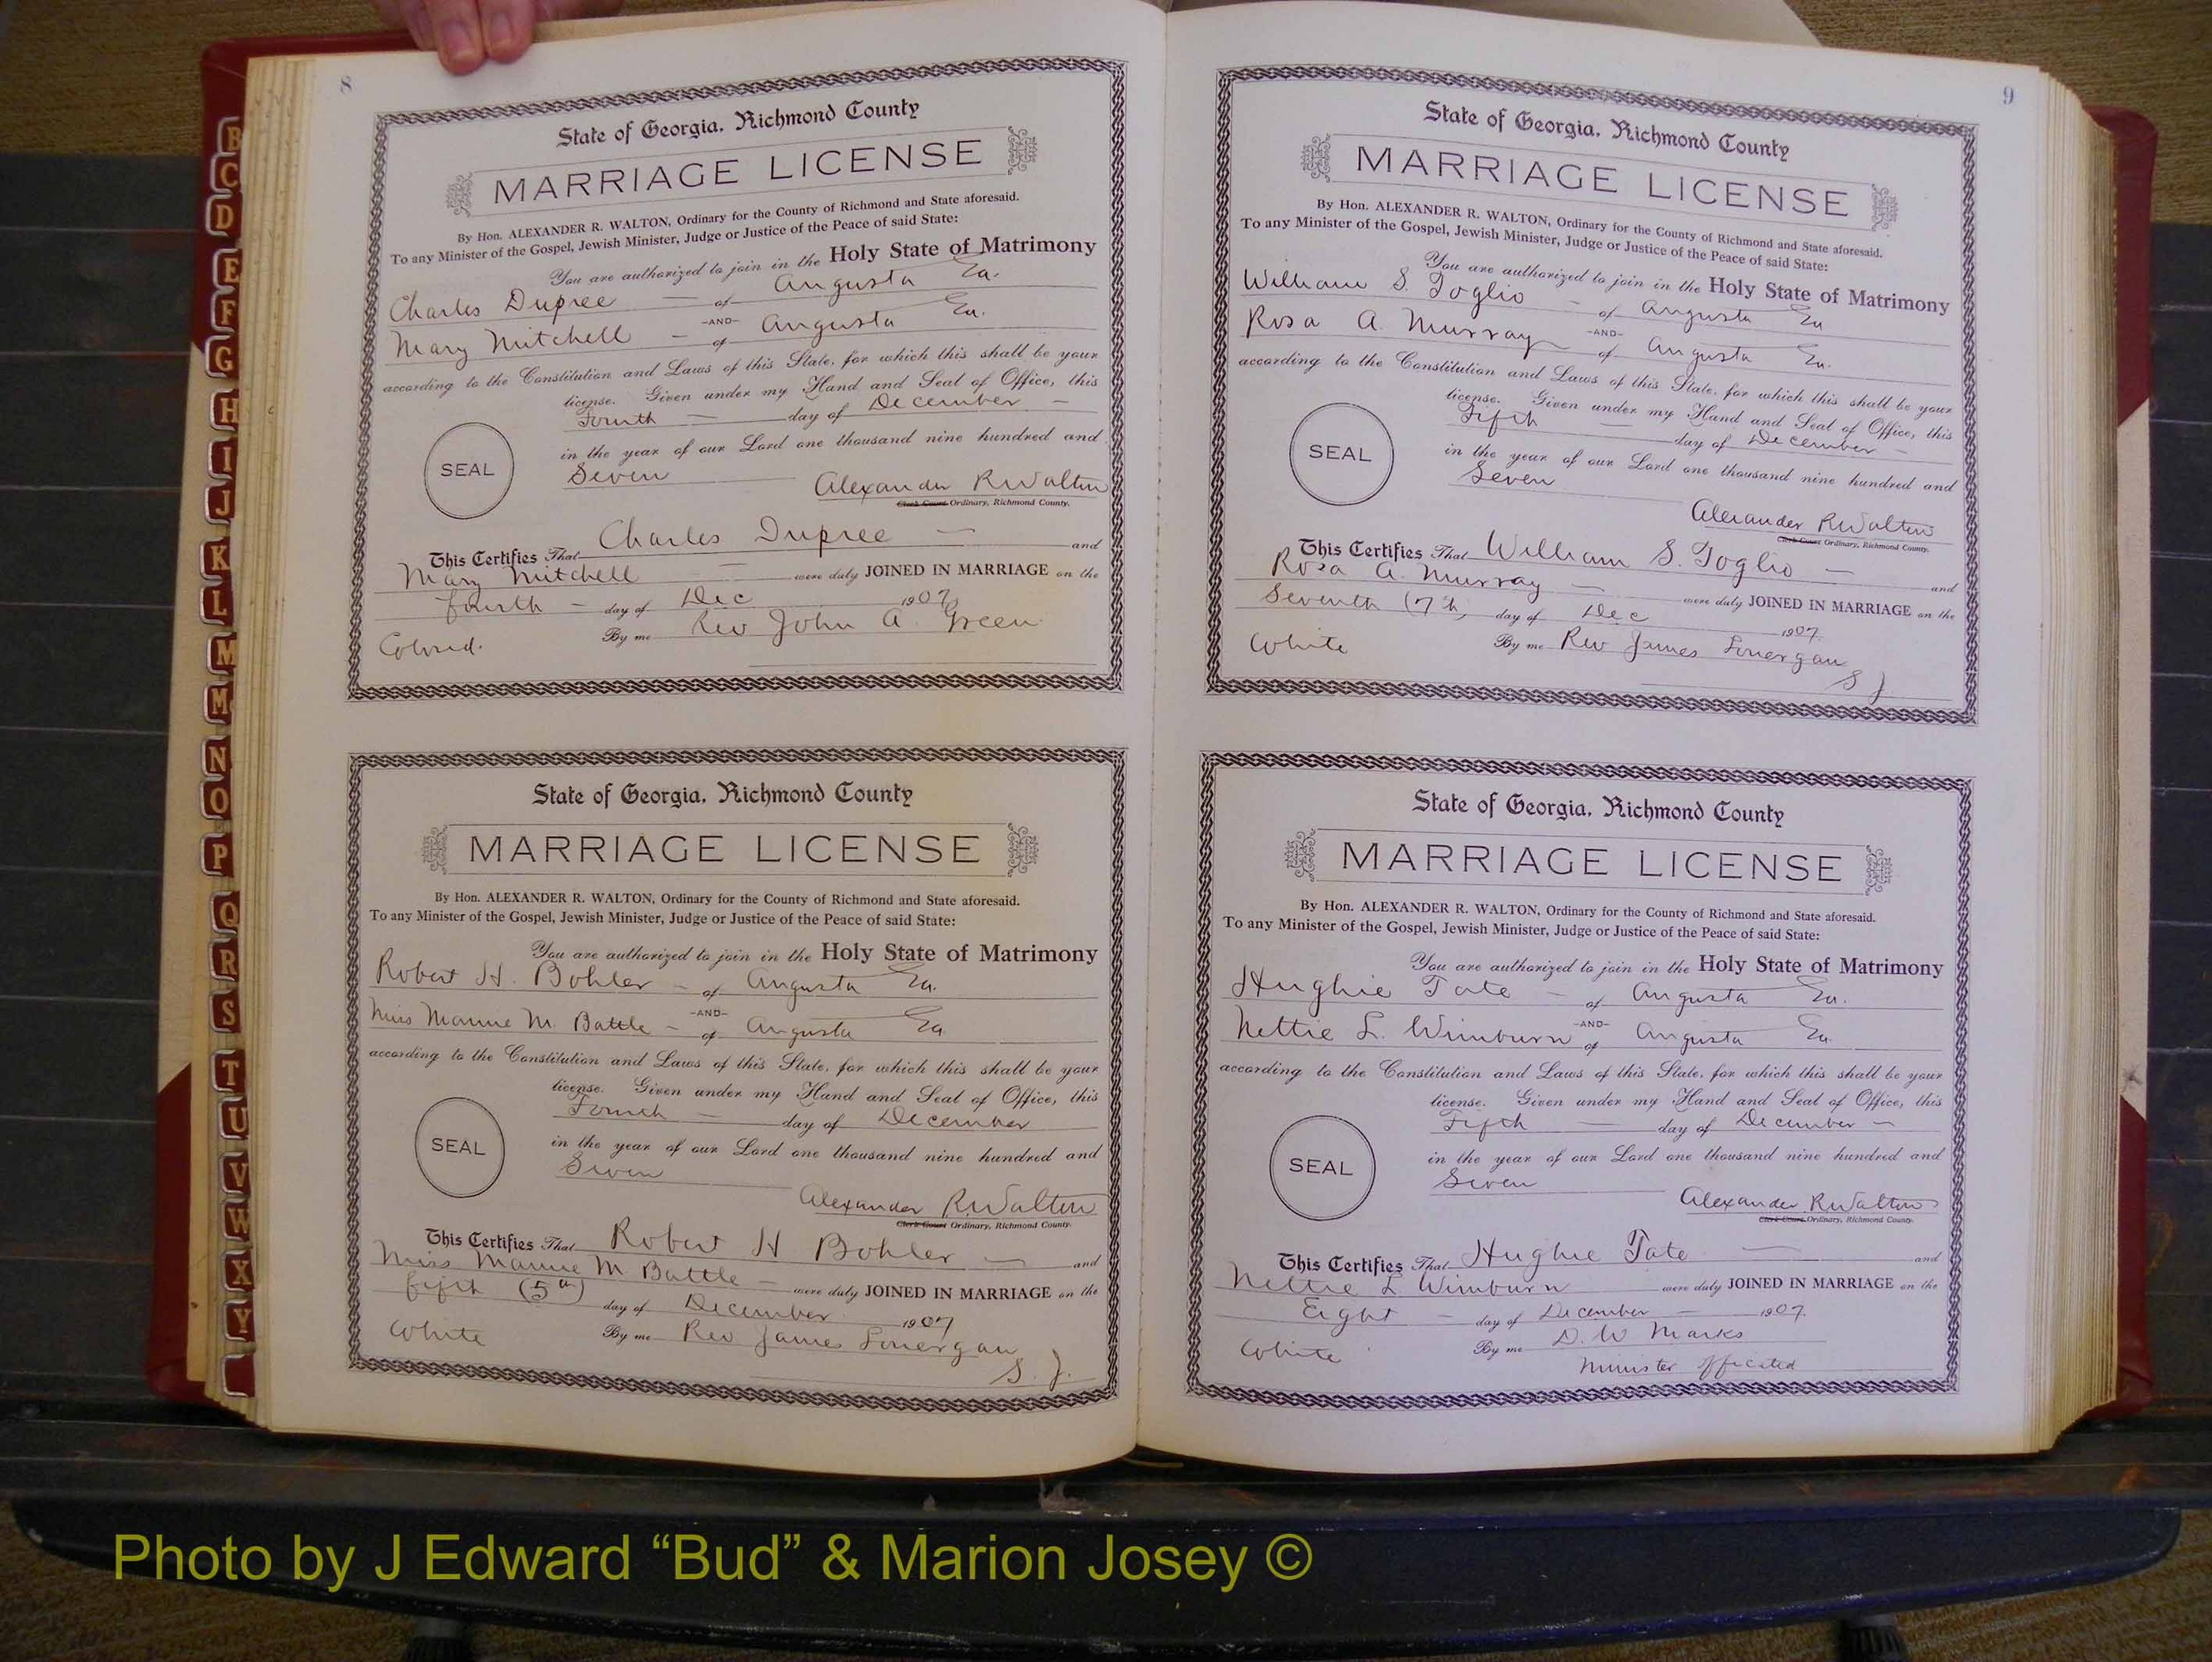 8
State of Georgia, Richmond County
MARRIAGE LICENSE
By Hon. ALEXANDER R. WALTON, Ordinary for the County of Richmond and State aforesaid.
To any Minister of the Gospel, Jewish Minister, Judge or Justice of the Peace of said State:
You are authorized to join in the Holy State of Matrimony
Charles Dupree — of Augusta Ga.
-AND-
Mary Mitchell — of Augusta Ga.
according to the Constitution and Laws of this State, for which this shall be your
license. Given under my Hand and Seal of Office, this
Fourth — day of December —
in the year of our Lord one thousand nine hundred and
SEAL
Seven
Alexander R Walton
Clerk Court Ordinary, Richmond County.
This Certifies That Charles Dupree — and
Mary Mitchell — were duly JOINED IN MARRIAGE on the
fourth — day of Dec 1907
Colored. By me Rev John A. Green
State of Georgia, Richmond County
MARRIAGE LICENSE
By Hon. ALEXANDER R. WALTON, Ordinary for the County of Richmond and State aforesaid.
To any Minister of the Gospel, Jewish Minister, Judge or Justice of the Peace of said State:
You are authorized to join in the Holy State of Matrimony
Robert H. Bohler — of Augusta Ga.
-AND-
Miss Mamie M. Battle — of Augusta Ga.
according to the Constitution and Laws of this State, for which this shall be your
license. Given under my Hand and Seal of Office, this
Fourth — day of December
in the year of our Lord one thousand nine hundred and
SEAL
Seven
Alexander R Walton
Clerk Court Ordinary, Richmond County.
This Certifies That Robert H Bohler — and
Miss Mamie M Battle — were duly JOINED IN MARRIAGE on the
fifth (5th) day of December 1907
White By me Rev James Lonergan
S. J.
9
State of Georgia, Richmond County
MARRIAGE LICENSE
By Hon. ALEXANDER R. WALTON, Ordinary for the County of Richmond and State aforesaid.
To any Minister of the Gospel, Jewish Minister, Judge or Justice of the Peace of said State:
You are authorized to join in the Holy State of Matrimony
William S. Toglio — of Augusta Ga
-AND-
Rosa A. Murray of Augusta Ga.
according to the Constitution and Laws of this State, for which this shall be your
license. Given under my Hand and Seal of Office, this
Fifth — day of December —
in the year of our Lord one thousand nine hundred and
SEAL
Seven
Alexander R Walton
Clerk Court Ordinary, Richmond County.
This Certifies That William S. Toglio — and
Rosa A. Murray — were duly JOINED IN MARRIAGE on the
Seventh (7th) day of Dec 1907.
White By me Rev James Lonergan
S J
State of Georgia, Richmond County
MARRIAGE LICENSE
By Hon. ALEXANDER R. WALTON, Ordinary for the County of Richmond and State aforesaid.
To any Minister of the Gospel, Jewish Minister, Judge or Justice of the Peace of said State:
You are authorized to join in the Holy State of Matrimony
Hughie Tate — of Augusta Ga.
-AND-
Nettie L. Wimburn of Augusta Ga.
according to the Constitution and Laws of this State, for which this shall be your
license. Given under my Hand and Seal of Office, this
Fifth — day of December —
in the year of our Lord one thousand nine hundred and
SEAL
Seven
Alexander R Walton
Clerk Court Ordinary, Richmond County.
This Certifies That Hughie Tate — and
Nettie L Wimburn were duly JOINED IN MARRIAGE on the
Eight — day of December — 1907.
White By me D. W Marks
Minister officated
B
C
D
E
F
G
H
I
J
K
L
M
M
N
O
P
Q
R
S
T
U
V
W
X
Y
Photo by J Edward “Bud” & Marion Josey ©